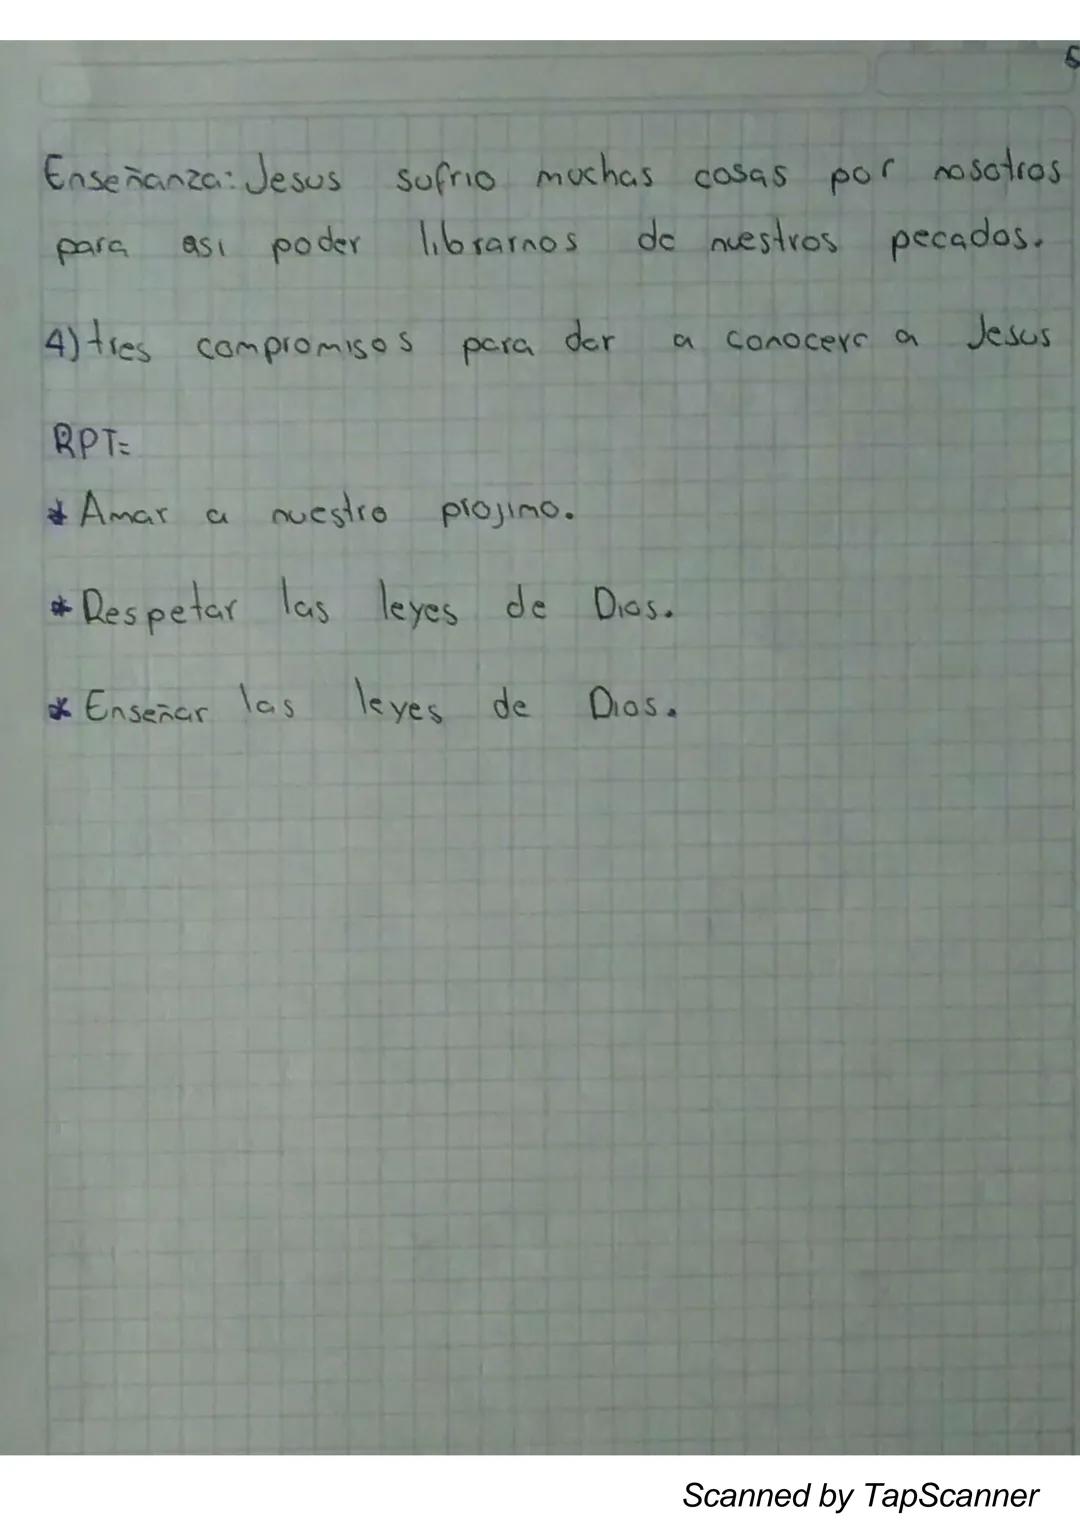 5
Enseñanza: Jesus sufrio muchas cosas por nosotros
para asi poder librarnos de nuestros pecados.
4) tres compromisos para dar a conocerc a Jesus
RPT=
* Amar a nuestro projimo.
* Respetar las leyes de Dios.
* Enseñar las leyes de Dios.
Scanned by TapScanner